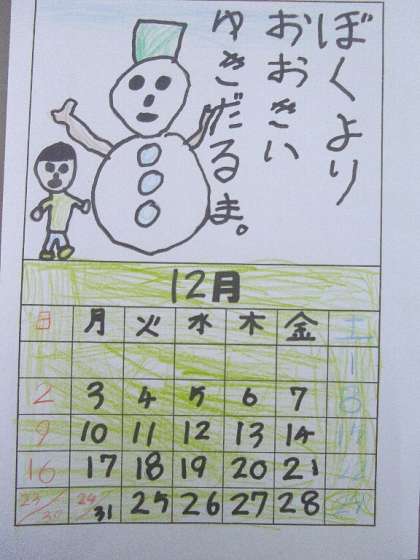 ぼくより
おおきい
ゆきだるま。
12月
日 月 火 水 木 金 土
1
2 3 4 5 6 7 8
9 10 11 12 13 14 15
16 17 18 19 20 21 22
23/30 24/31 25 26 27 28 29